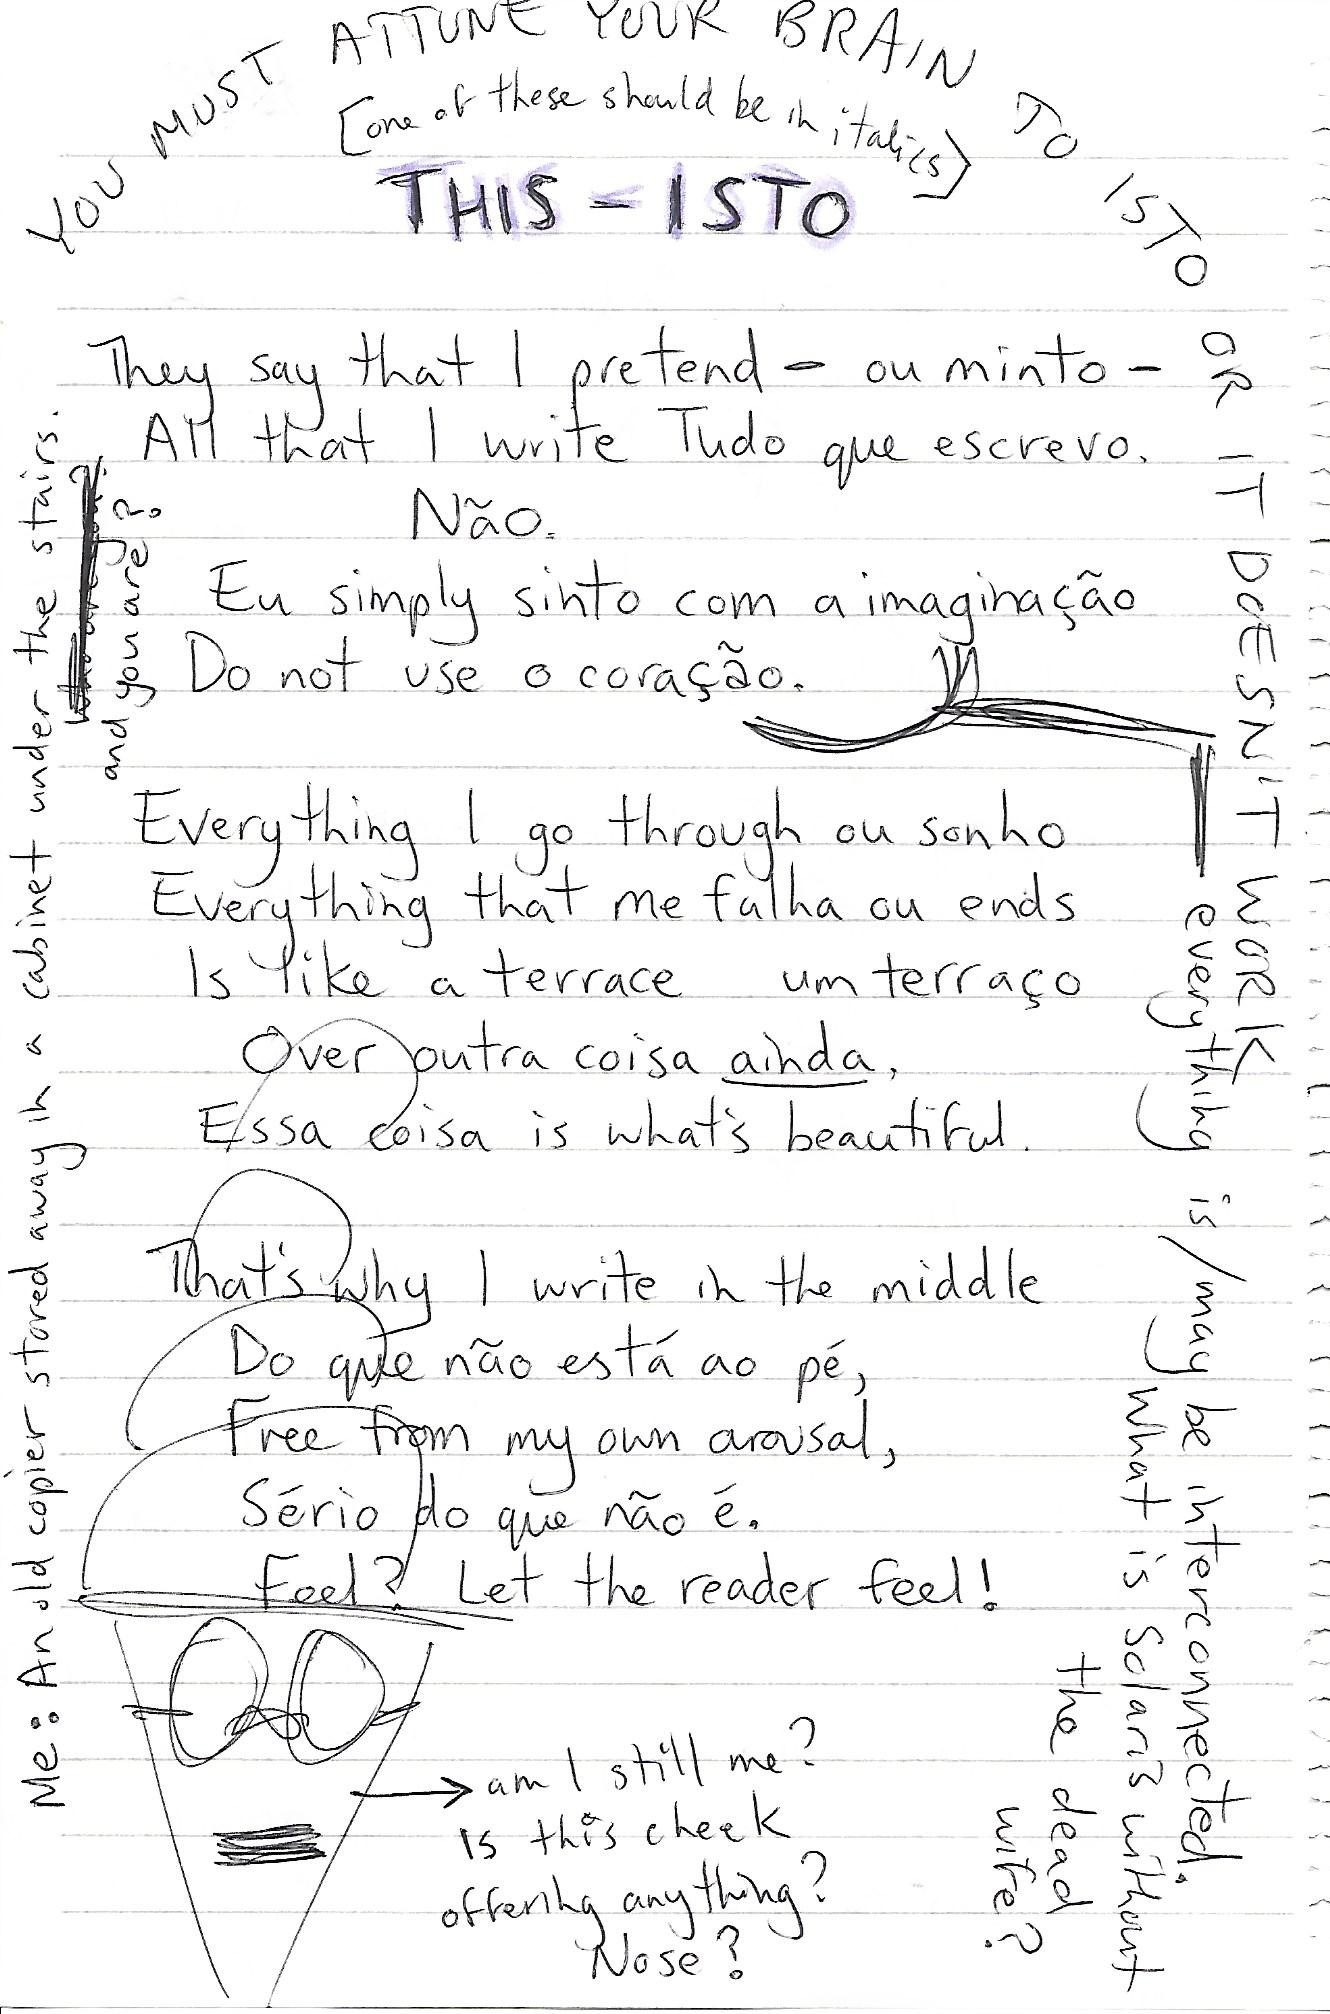 YOU MUST ATTUNE YOUR BRAIN TO ISTO OR IT DOESN'T WORK
[one of these should be in italics]
THIS – ISTO
They say that I pretend – ou minto –
All that I write Tudo que escrevo.
Não.
Eu simply sinto com a imaginação
Do not use o coração.
Everything I go through ou sonho
Everything that me falha ou ends
Is like a terrace um terraço
Over outra coisa ainda,
Essa coisa is what's beautiful.
That's why I write in the middle
Do que não está ao pé,
Free from my own arousal,
Sério do que não é.
Feel? Let the reader feel!
am I still me?
Is this cheek
offering anything?
Nose?
Me: An old copier stored away in a cabinet under the stairs.
and you are?
everything is/may be interconnected.
What is Solaris without
the dead
wife?